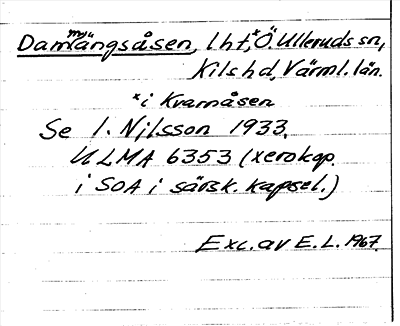 Dammyrängsåsen, lht,* Ö. Ulleruds sn,
Kils hd, Värml. län.
* i Kvarnåsen
Se I. Nilsson 1933.
ULMA 6353 (xerokop.
i SOA i särsk. kapsel.)
Exc. av E. L. 1967.